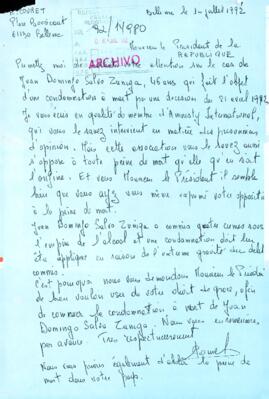 Bellême le 1 juillet 1992
Place
61130 Bellême
92/14980
ARCHIVO
Monsieur le Président de la
REPUBLIQUE
Permettez moi attention sur le cas de
Juan Domingo Salvo Zuniga, 45 ans qui fait l'objet
d'une condamnation à mort par une décision du 21 avril 1992
Je vous écris en qualité de membre d'Amnesty International,
qui vous le savez intervient en matière des prisonniers
d'opinion. Mais cette association vous le savez aussi
s'oppose à toute peine de mort qu'elle qu'en soit
l'origine. Et vous Monsieur le Président il semble
bien que vous ayez vous même exprimé votre opposition
à la peine de mort.
Juan Domingo Salvo Zuniga a commis quatre crimes sous
l'empire de l'alcool et une condamnation doit lui
être appliquée en raison de l'extrême gravité des délits
commis.
C'est pourquoi nous vous demandons Monsieur le Président
de bien vouloir user de votre droit de grâce, afin
de commuer la condamnation à mort de Juan
Domingo Salvo Zuniga. Nous vous en remercions
par avance. Très respectueusement
Nous vous prions également d'abolir la peine de
mort dans votre pays.